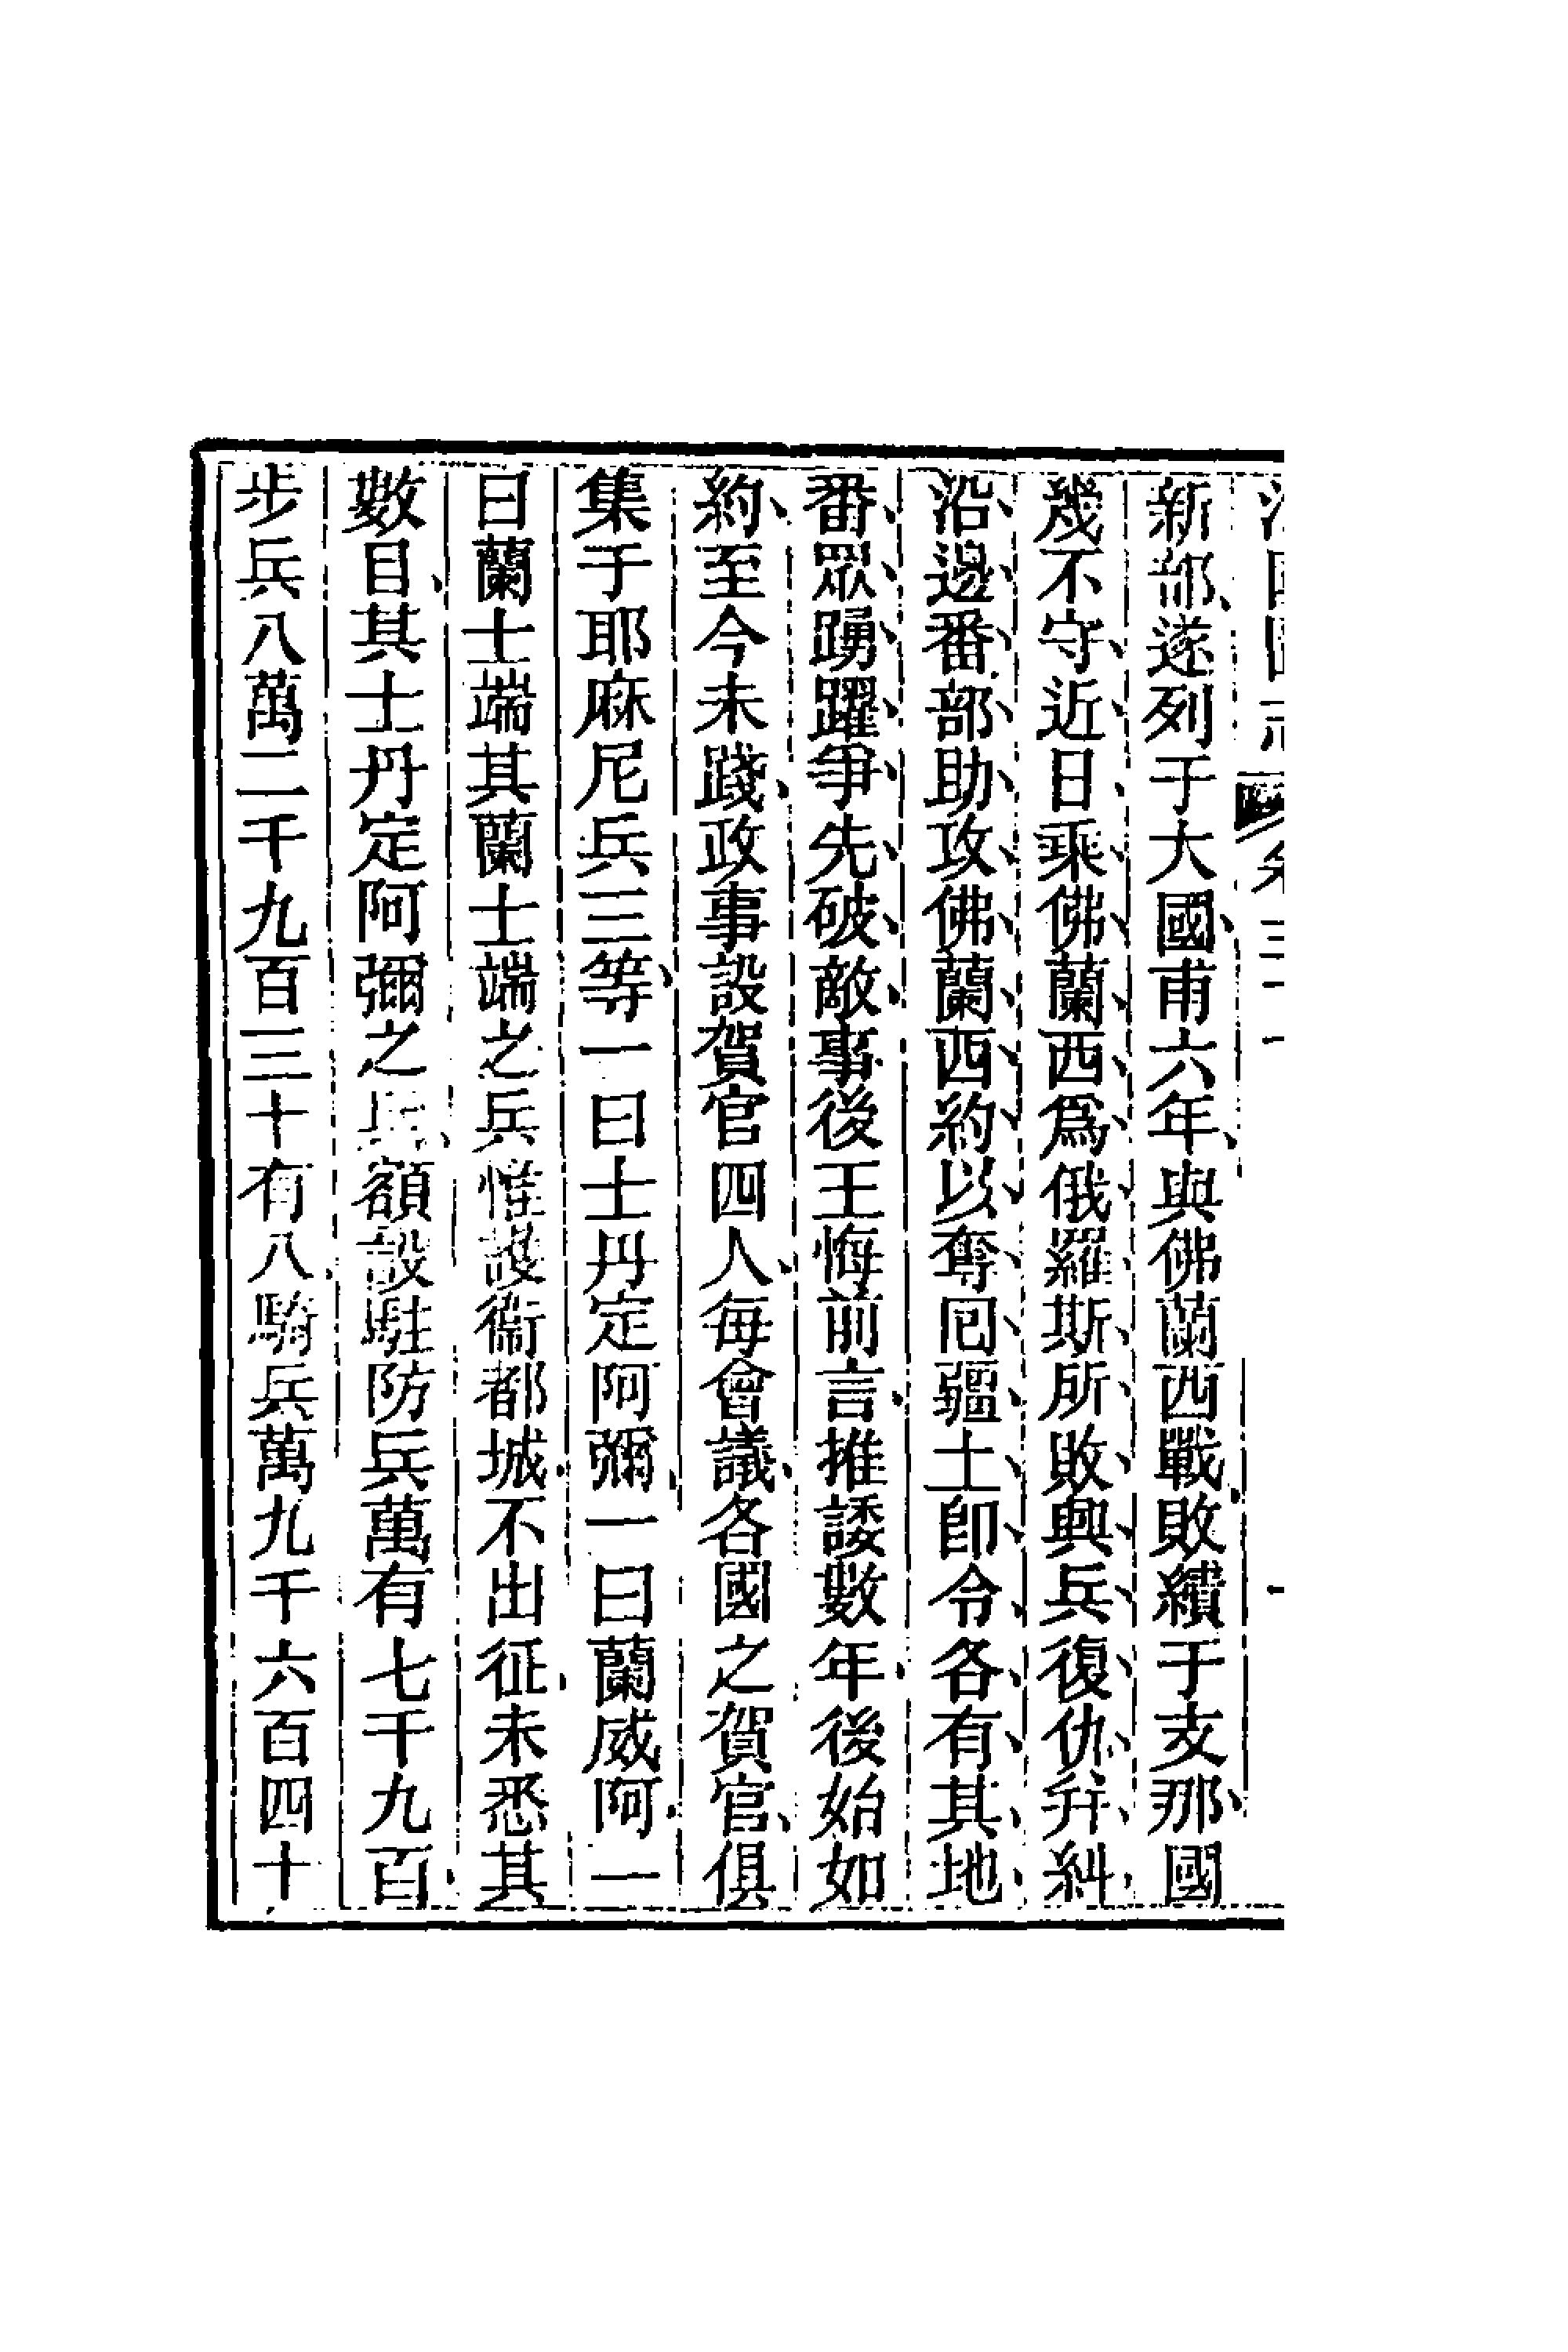 新部遂列于大國甫六年與佛蘭西戰敗績于支那國
幾不守近日乘佛蘭西爲俄羅斯所敗興兵復仇幷糾
沿邊番部助攻佛蘭西約以奪囘疆土卽令各有其地
番眾踴躍爭先破敵事後王悔前言推諉數年後始如
約至今未踐政事設賀官四人每會議各國之賀官俱
集于耶麻尼兵三等一曰士丹定阿彌一曰蘭威阿一
曰蘭士端其蘭士端之兵惟護衞都城不出征未悉其
數目其士丹定阿彌之兵額設駐防兵萬有七千九百
步兵八萬二千九百三十有八騎兵萬九千六百四十